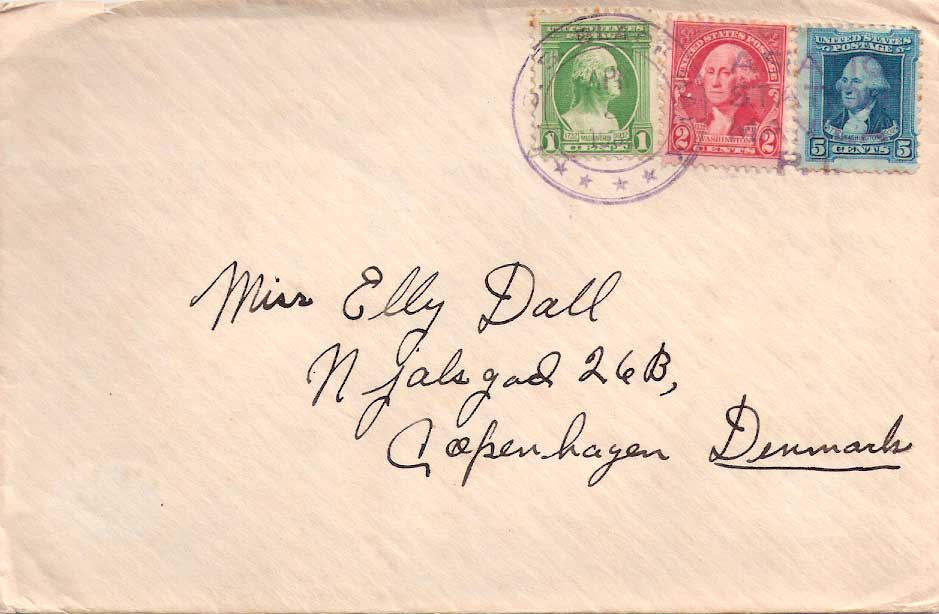 UNITED STATES POSTAGE
1732 WASHINGTON 1932
1 CENT 1
UNITED STATES POSTAGE
2 WASHINGTON 2
CENTS
UNITED STATES
POSTAGE
WASHINGTON
5 CENTS 5
APR
Miss Elly Dall
Njalsgad 26B,
Copenhagen Denmark